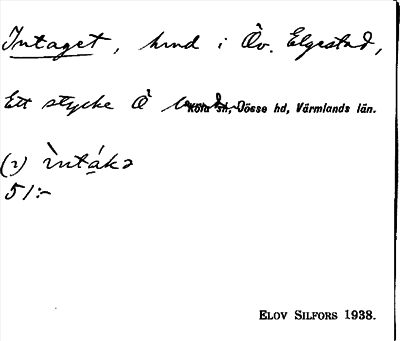 Intaget, hmd i Öv. Elgestad,
Ett stycke Å
Köla sn, Jösse hd, Värmlands län.
(2) ìntáka
51:-
ELOV SILFORS 1938.